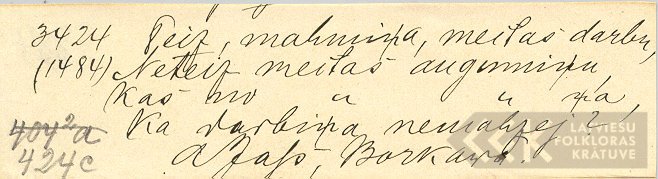 3424 Teiz, mahmiņa, meitas darbu,
(1484) Neteiz meitas augumiņu,
Kas no " " ņa,
404²a Ka darbiņa nemahzej?
424c Ozols, Borkawa.
LATVIEŠU
FOLKLORAS
KRĀTUVE